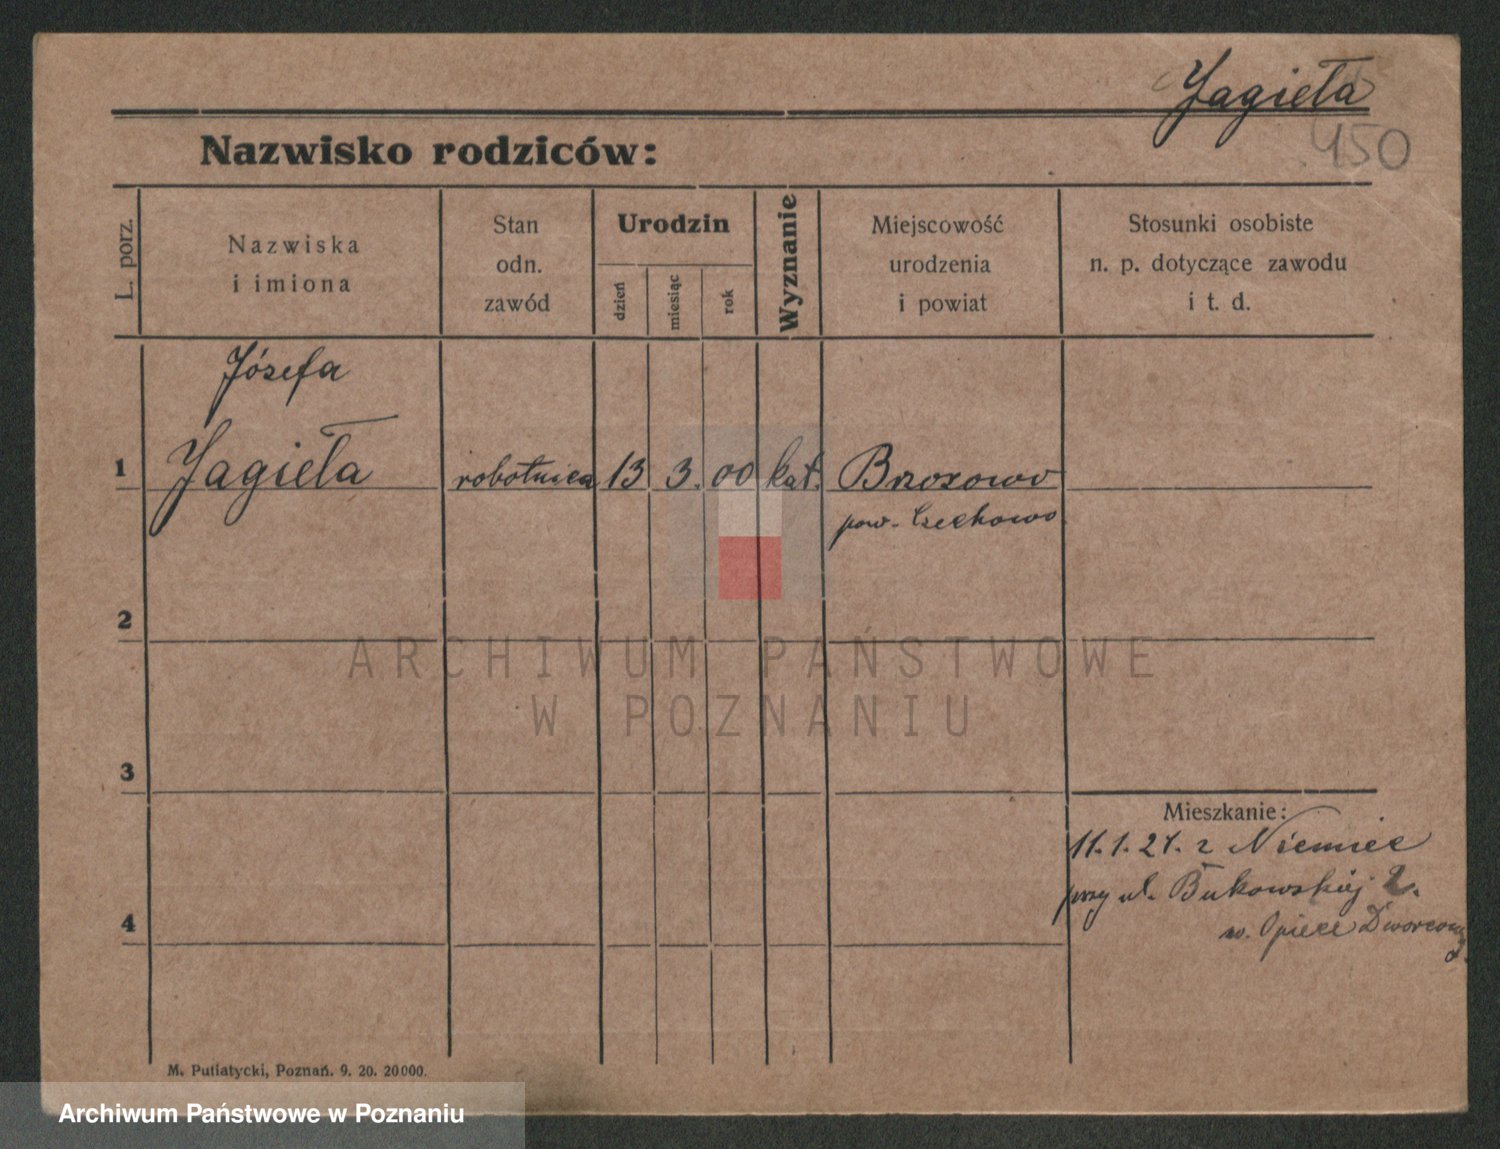 Jagieła
450
Nazwisko rodziców:
L. porz.
Nazwiska
i imiona
Stan
odn.
zawód
Urodzin
dzień
miesiąc
rok
Wyznanie
Miejscowość
urodzenia
i powiat
Stosunki osobiste
n. p. dotyczące zawodu
i t. d.
Józefa
1 Jagieła robotnica 13 3. 00 kat. Brzozowo
pow. Czechowo
2
ARCHIWUM PAŃSTWOWE
W POZNANIU
3
Mieszkanie:
11.1.21. z Niemiec
przy ul. Bukowskiej 2.
w. Opiece Dworcowej
4
M. Putiatycki, Poznań. 9. 20. 20000.
Archiwum Państwowe w Poznaniu